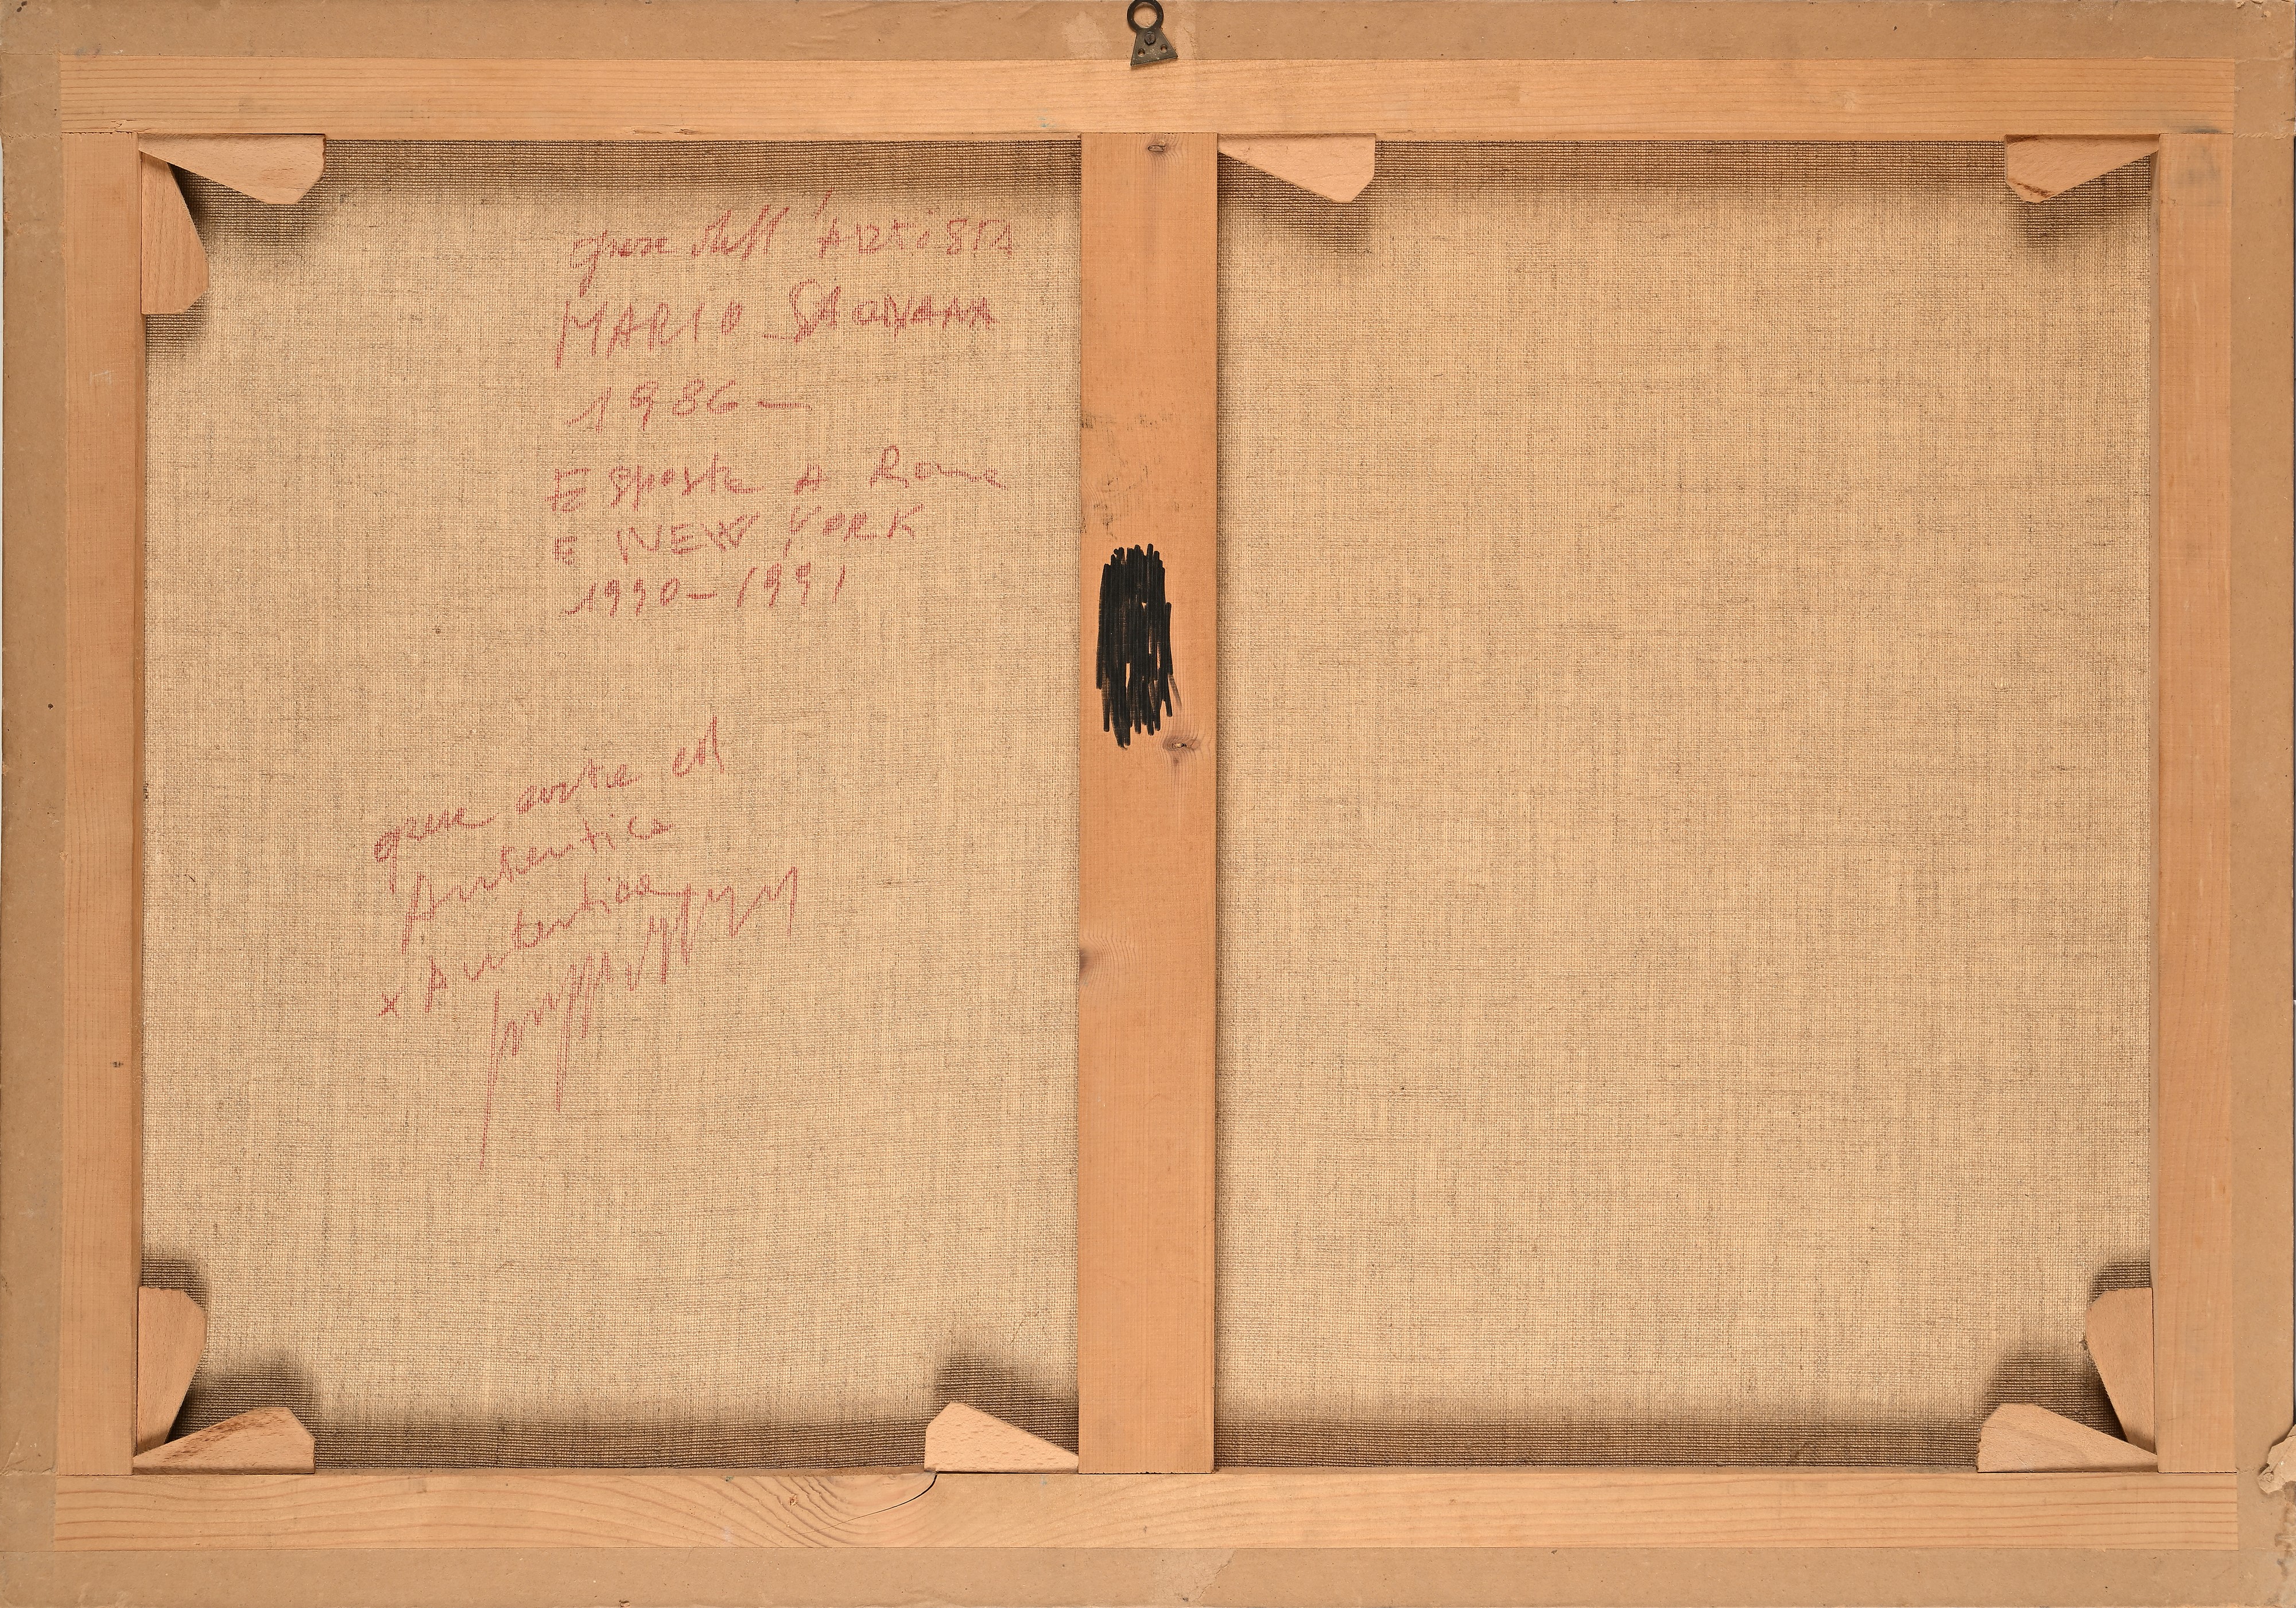 opera dell'Artista
MARIO
1986-
Esposta A Roma
E NEW YORK
1990-1991
opera ed
Autentica
x Autentica